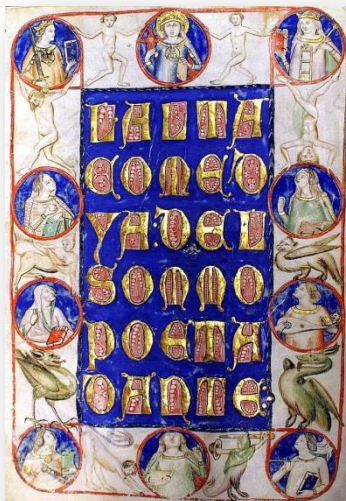 LA
COMED
YA·DEL
SOMMO
POETA
DANTE